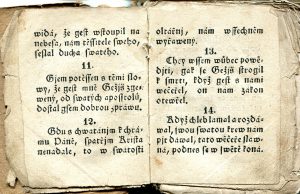 wida, že gest wstoupil na
nebesa, nám těssitele sweho,
seslal ducha swateho.
11.
Gsem potěssen s těmi slo-
wy, že gest mně Gežiš zge-
wený, od swatých aposstolů,
dostal gsem dobrou zprawu.
12.
Gdu s chwatánjm k chrá-
mu Páně, spatřjm Krista
nenadale, to w swatosti
oltářnj, nám wssechněm
wyřaweny.
13.
Chcy wssem wůbec powě-
djti, gak se Gežiš strogil
k smrti, když gest s nami
wečeřel, on nam zakon
otewřel.
14.
Když chleb lamal a rozdá-
wal, swou swatou krew nám
pit dáwal, tato wečeře sla-
wná, podnes se w swětě koná.